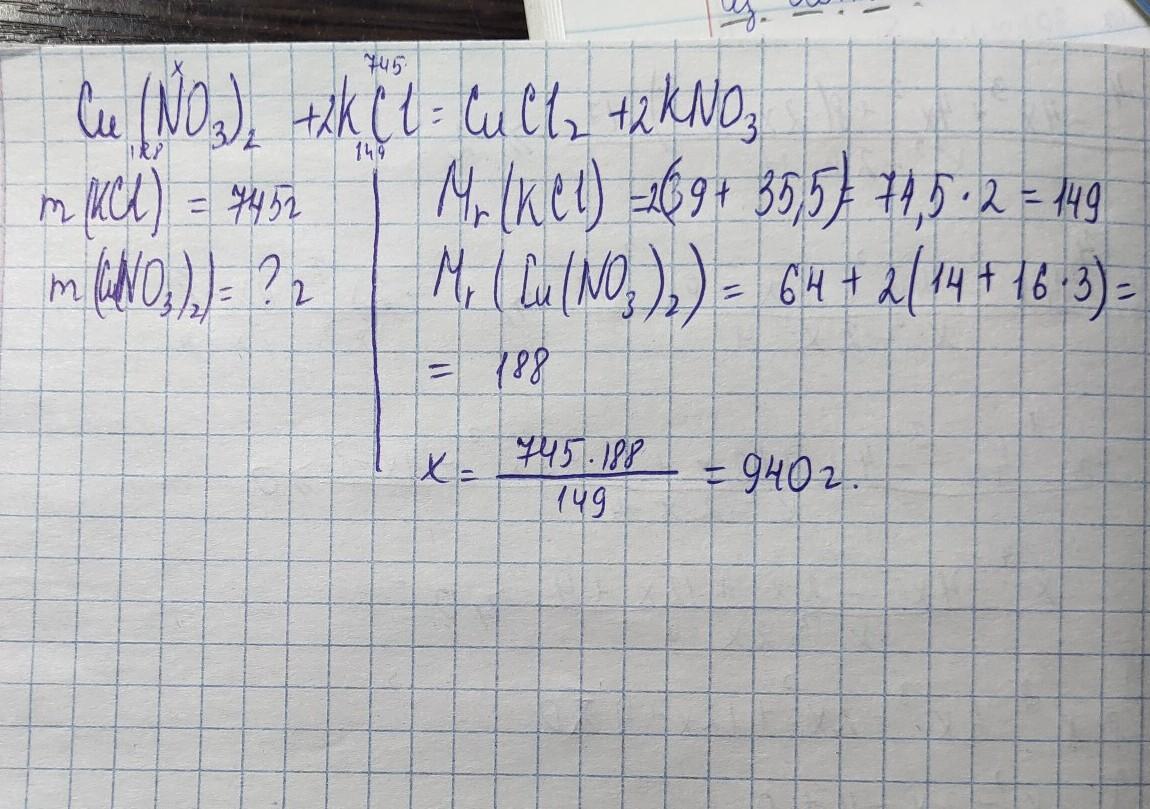 x 745
Cu(NO₃)₂ + 2KCl = CuCl₂ + 2KNO₃
188 149
m(KCl) = 745г
m(Cu(NO₃)₂) = ? г
Mr(KCl) = 2(39 + 35,5) = 74,5 · 2 = 149
Mr(Cu(NO₃)₂) = 64 + 2(14 + 16·3) =
= 188
x = 745·188 / 149 = 940г.